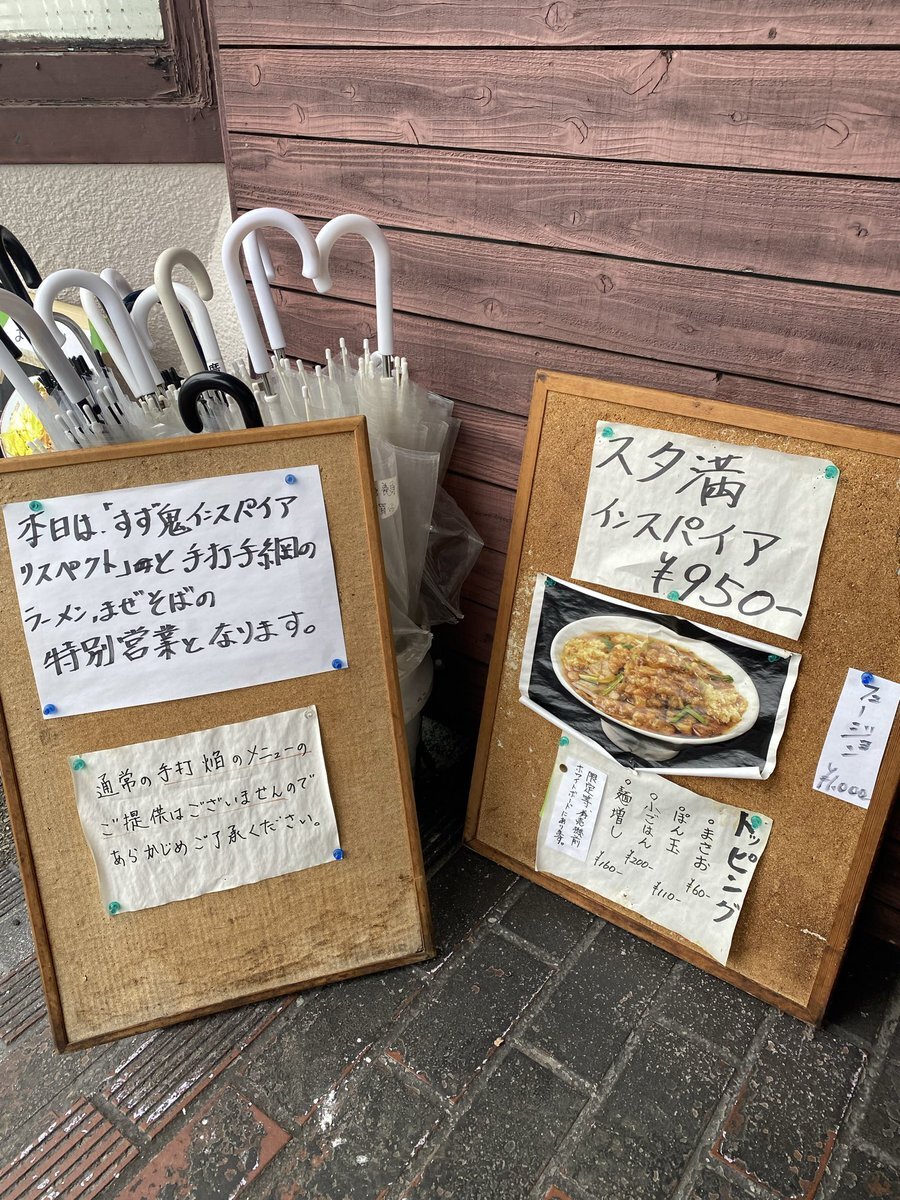 本日は、「すず鬼インスパイア
リスペクト」と手打手網の
ラーメン,まぜそばの
特別営業となります。
通常の手打 焔のメニューの
ご提供はございませんので
あらかじめご了承ください。
スタ満
インスパイア
¥950-
フュージョン
¥1,000
トッピング
○まさお ¥60-
○ぽん玉 ¥110-
○ふごはん ¥200-
○麺増し ¥160-
限定等、券売機前
ホワイトボードにあります。